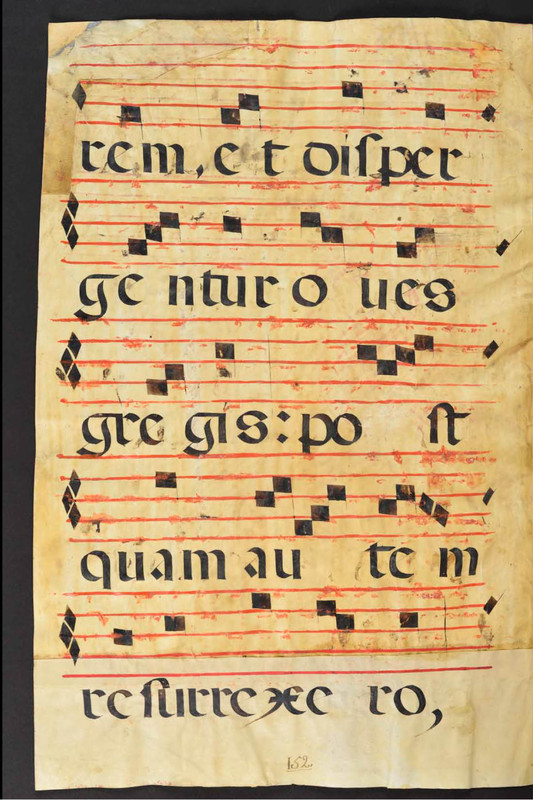 rem, et diſper
ge ntur o ues
gre gis: po ſt
quam au te m
reſurrexe ro,
152.